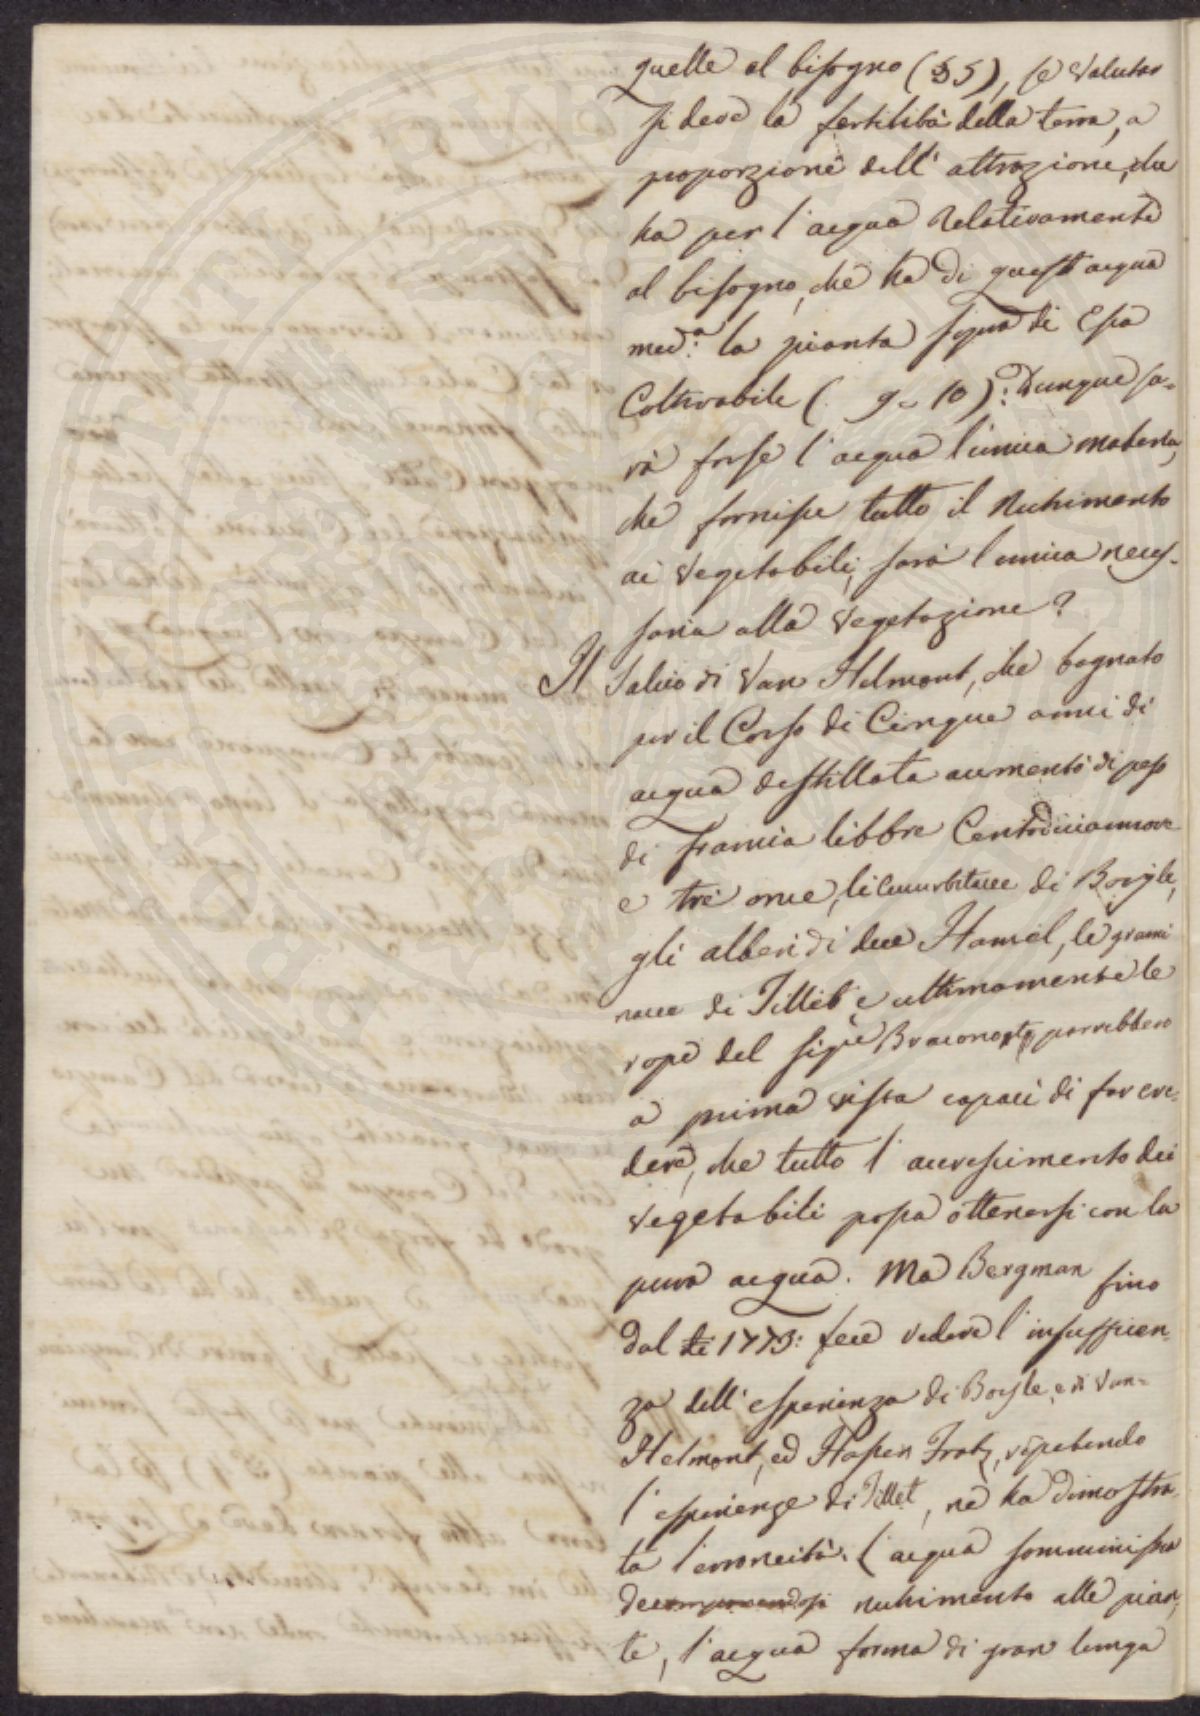 quelle al bisogno (§5), se valutar
si deve la fertilità della terra, a
proporzione dell' attrazione, che
ha per l'acqua relativamente
al bisogno, che ha di quest acqua
med.ª la pianta sopra di Essa
Coltivabile ( 9. 10): Dunque sa=
rà forse l'acqua l'unica materia,
che fornisce tutto il nutrimento
ai vegetabili, sarà l unica neces-
saria alla vegetazione?
Il Salcio di Van Helmont, che bagnato
per il Corso di Cinque anni di
acqua destillata aumentò di peso
di Francia libbre Centodiciannove
e tre once, le Cucurbitacee di Boyle,
gli alberi di due Hamel, le grami
nacee di Tillet e ultimamente le
rape del sig.re Braconot parrebbero
a prima vista capaci di far cre-
dere, che tutto l' accrescimento dei
vegetabili possa ottenersi con la
pura acqua. Ma Bergman fino
dal 1773: fece vedere l' insufficien
za dell' esperienza di Boyle, e di Van=
Helmont, ed Hassen Fratz, ripetendo
l' esperienze di Tillet, ne ha dimostra
ta l'erroneità. L'acqua somministra
decomponendosi nutrimento alle pian
te, l'acqua forma di gran lunga